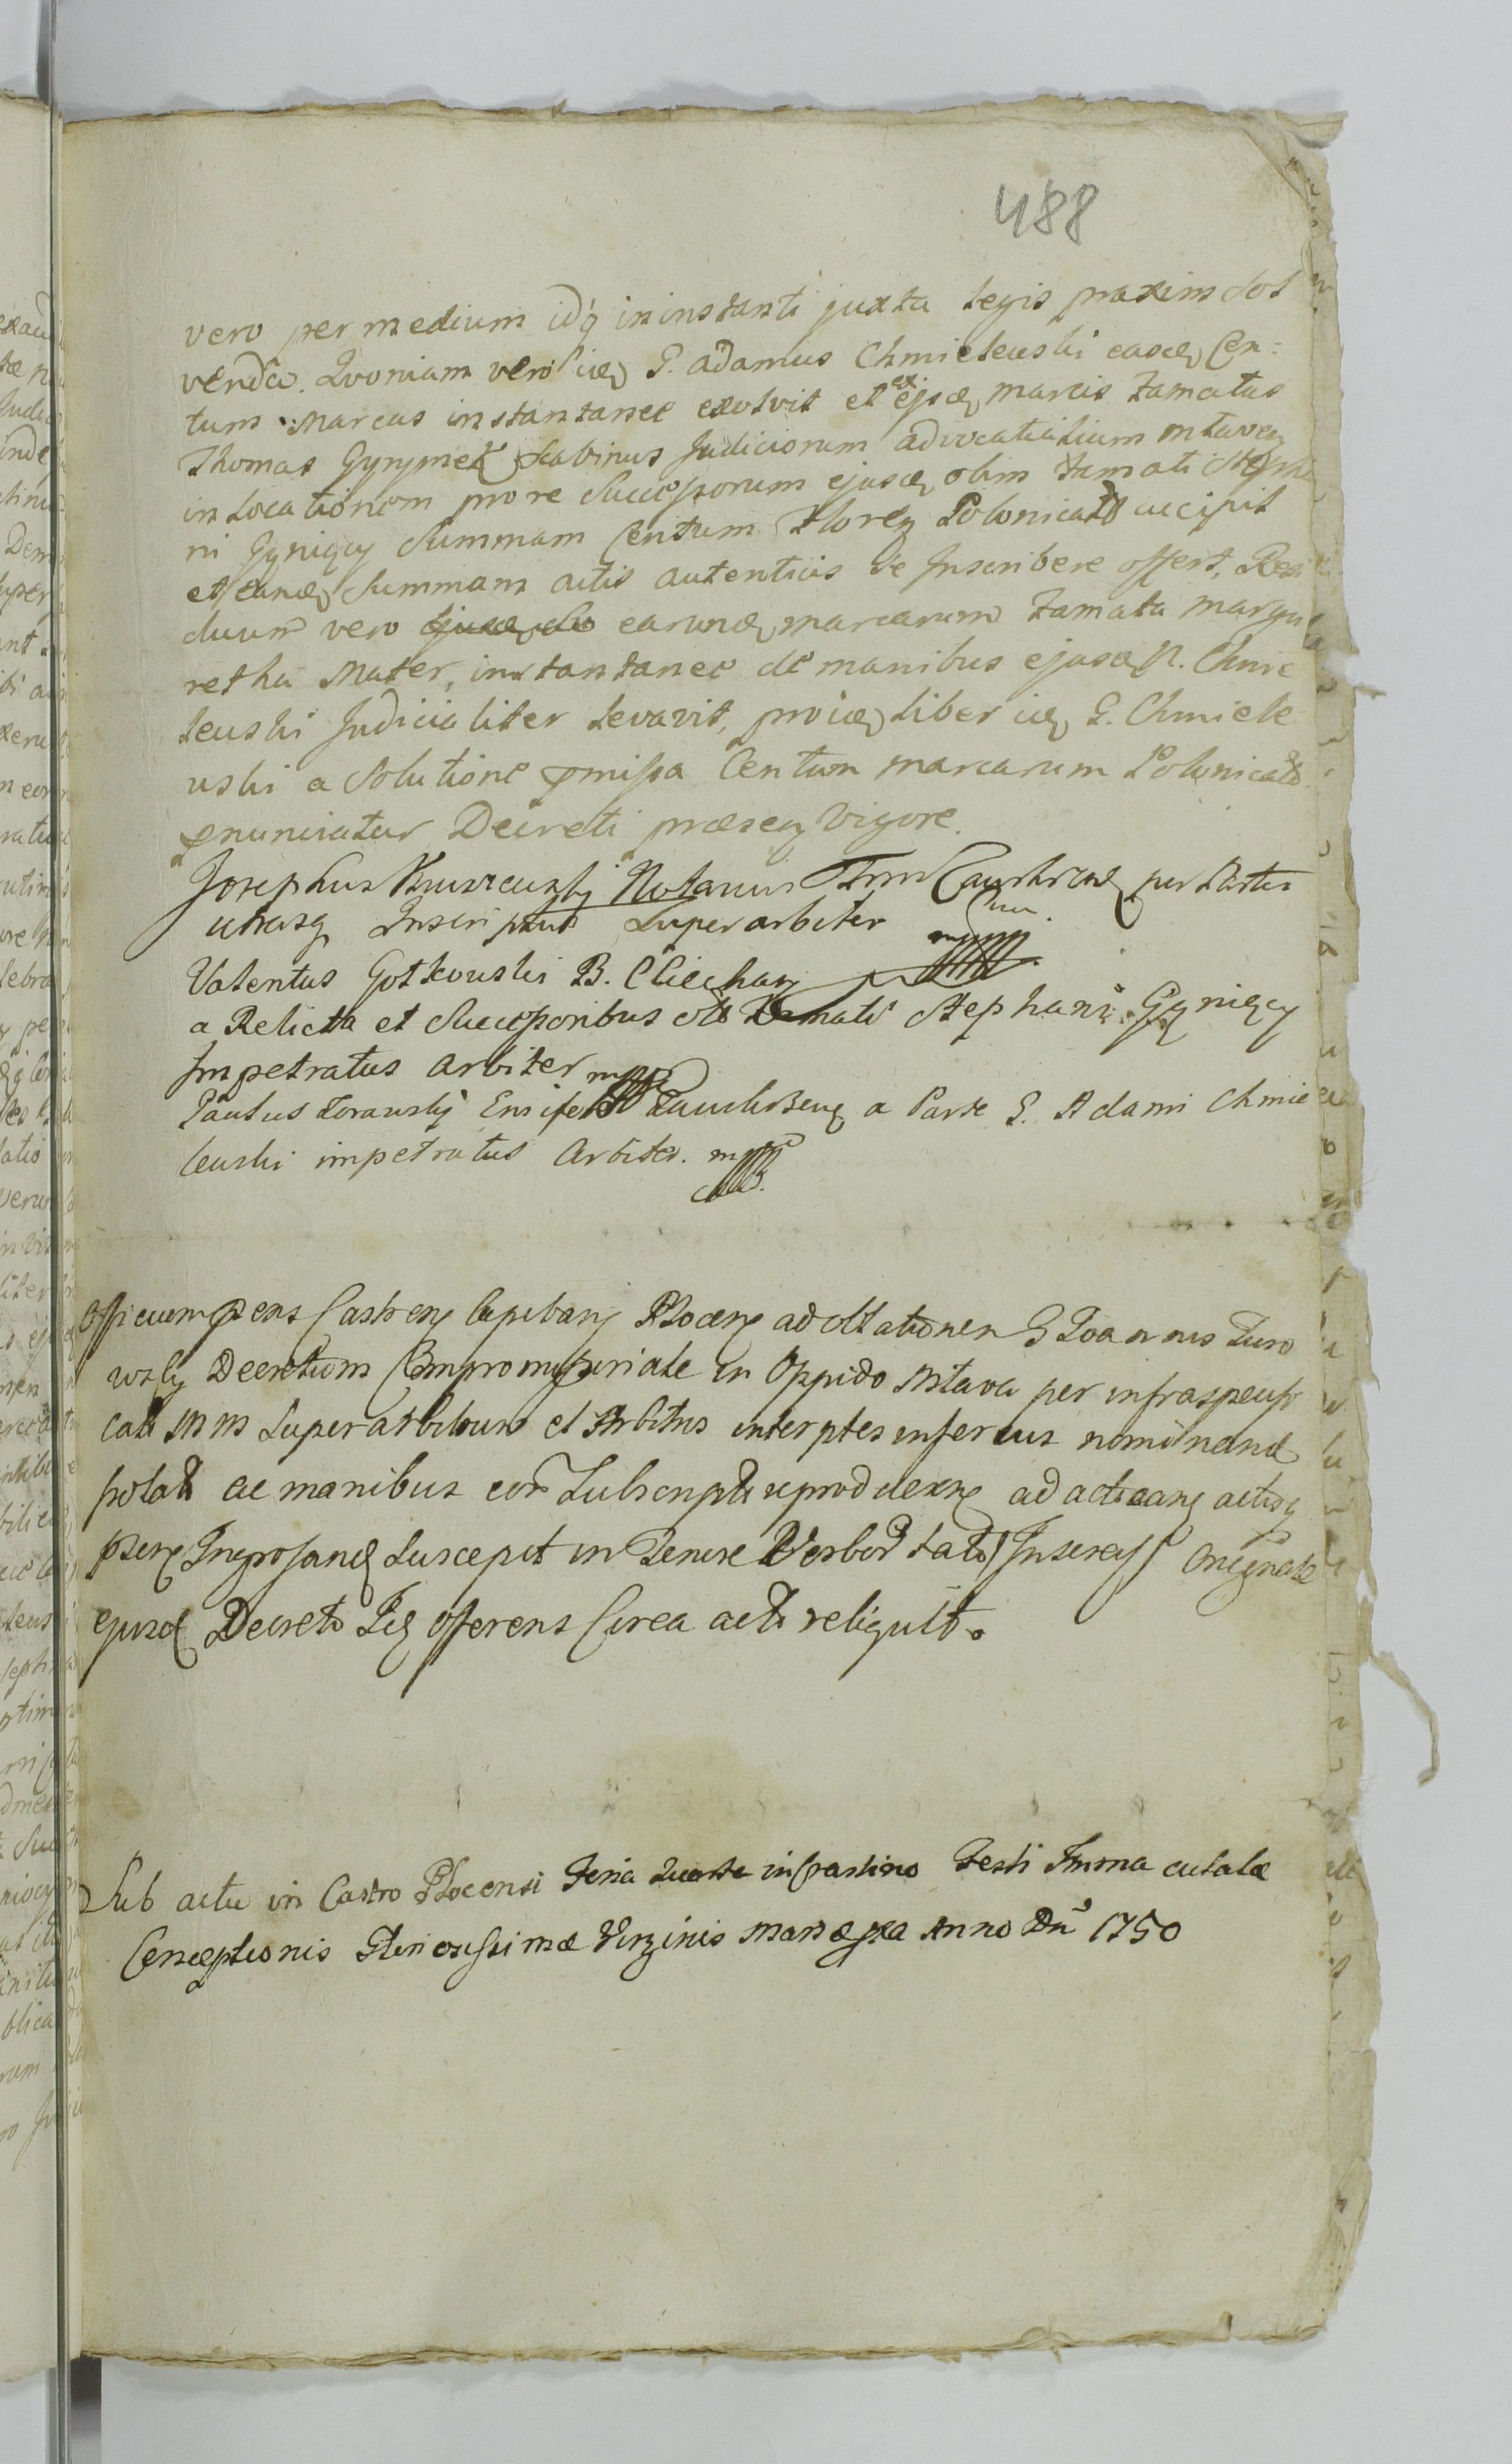 488
vero per medium idq in instanti juxta legis praxim sol
venda. Quoniam vero idem G. Adamus Chmieleuski easdem Cen=
tum Marcas instantanee exolvit et ex ejsdem marcis Famatus
Thomas Gyrymek Scabinus Judiciorum advocatialium Mlaven
in locationem pro re Successorum ejusdem olim Famati Stepha
ni Gynigcy Summam Centum Floren Polonicales accipit
et eandem Summam actis autenticis se Inscribere offert, Resi
duum vero earundem marcarum Famata Marga
retha Mater, instantanee de manibus ejusdem G. Chmie
leuski Judicialiter levavit, proinde liber idem G. Chmiele
uski a Solutione pmissa Centum marcarum Polonicaliu
pnunciatur Decreti praesen Vigore.
Josephus Notarius Trris per Partes
utrasq Inscriptus Superarbiter
Valentus Gotkouski B. Ciechan
a Relicta et Successoribus olim Famati Stephani Gynigcy
Impetratus Arbiter mpp
Paulus Ensifer a Parte G. Adami Chmie
leuski impetratus Arbiter. mpp
Officium Pens Castren Capitan Plocen ad oblationem G Joannis Turo
wsky Decretum Compromissoriale in Oppido Mlava per infraspecifi
catos MM Superarbitrum et Arbitros inter ptes inferius nominand
prolat ac manibus eor Subscriptu reproducen ad acticand actisq
psen Ingrossand Suscepit in Tenore Verbor tali / Inserat / Originale
ejusd Decreti Id Offerens Circa acta reliquit.
Sub actu in Castro Plocensi Feria Quarta in Crastino Festi Immaculatae
Conceptionis Gloriosissimae Virginis Mariae Anno Dni 1750